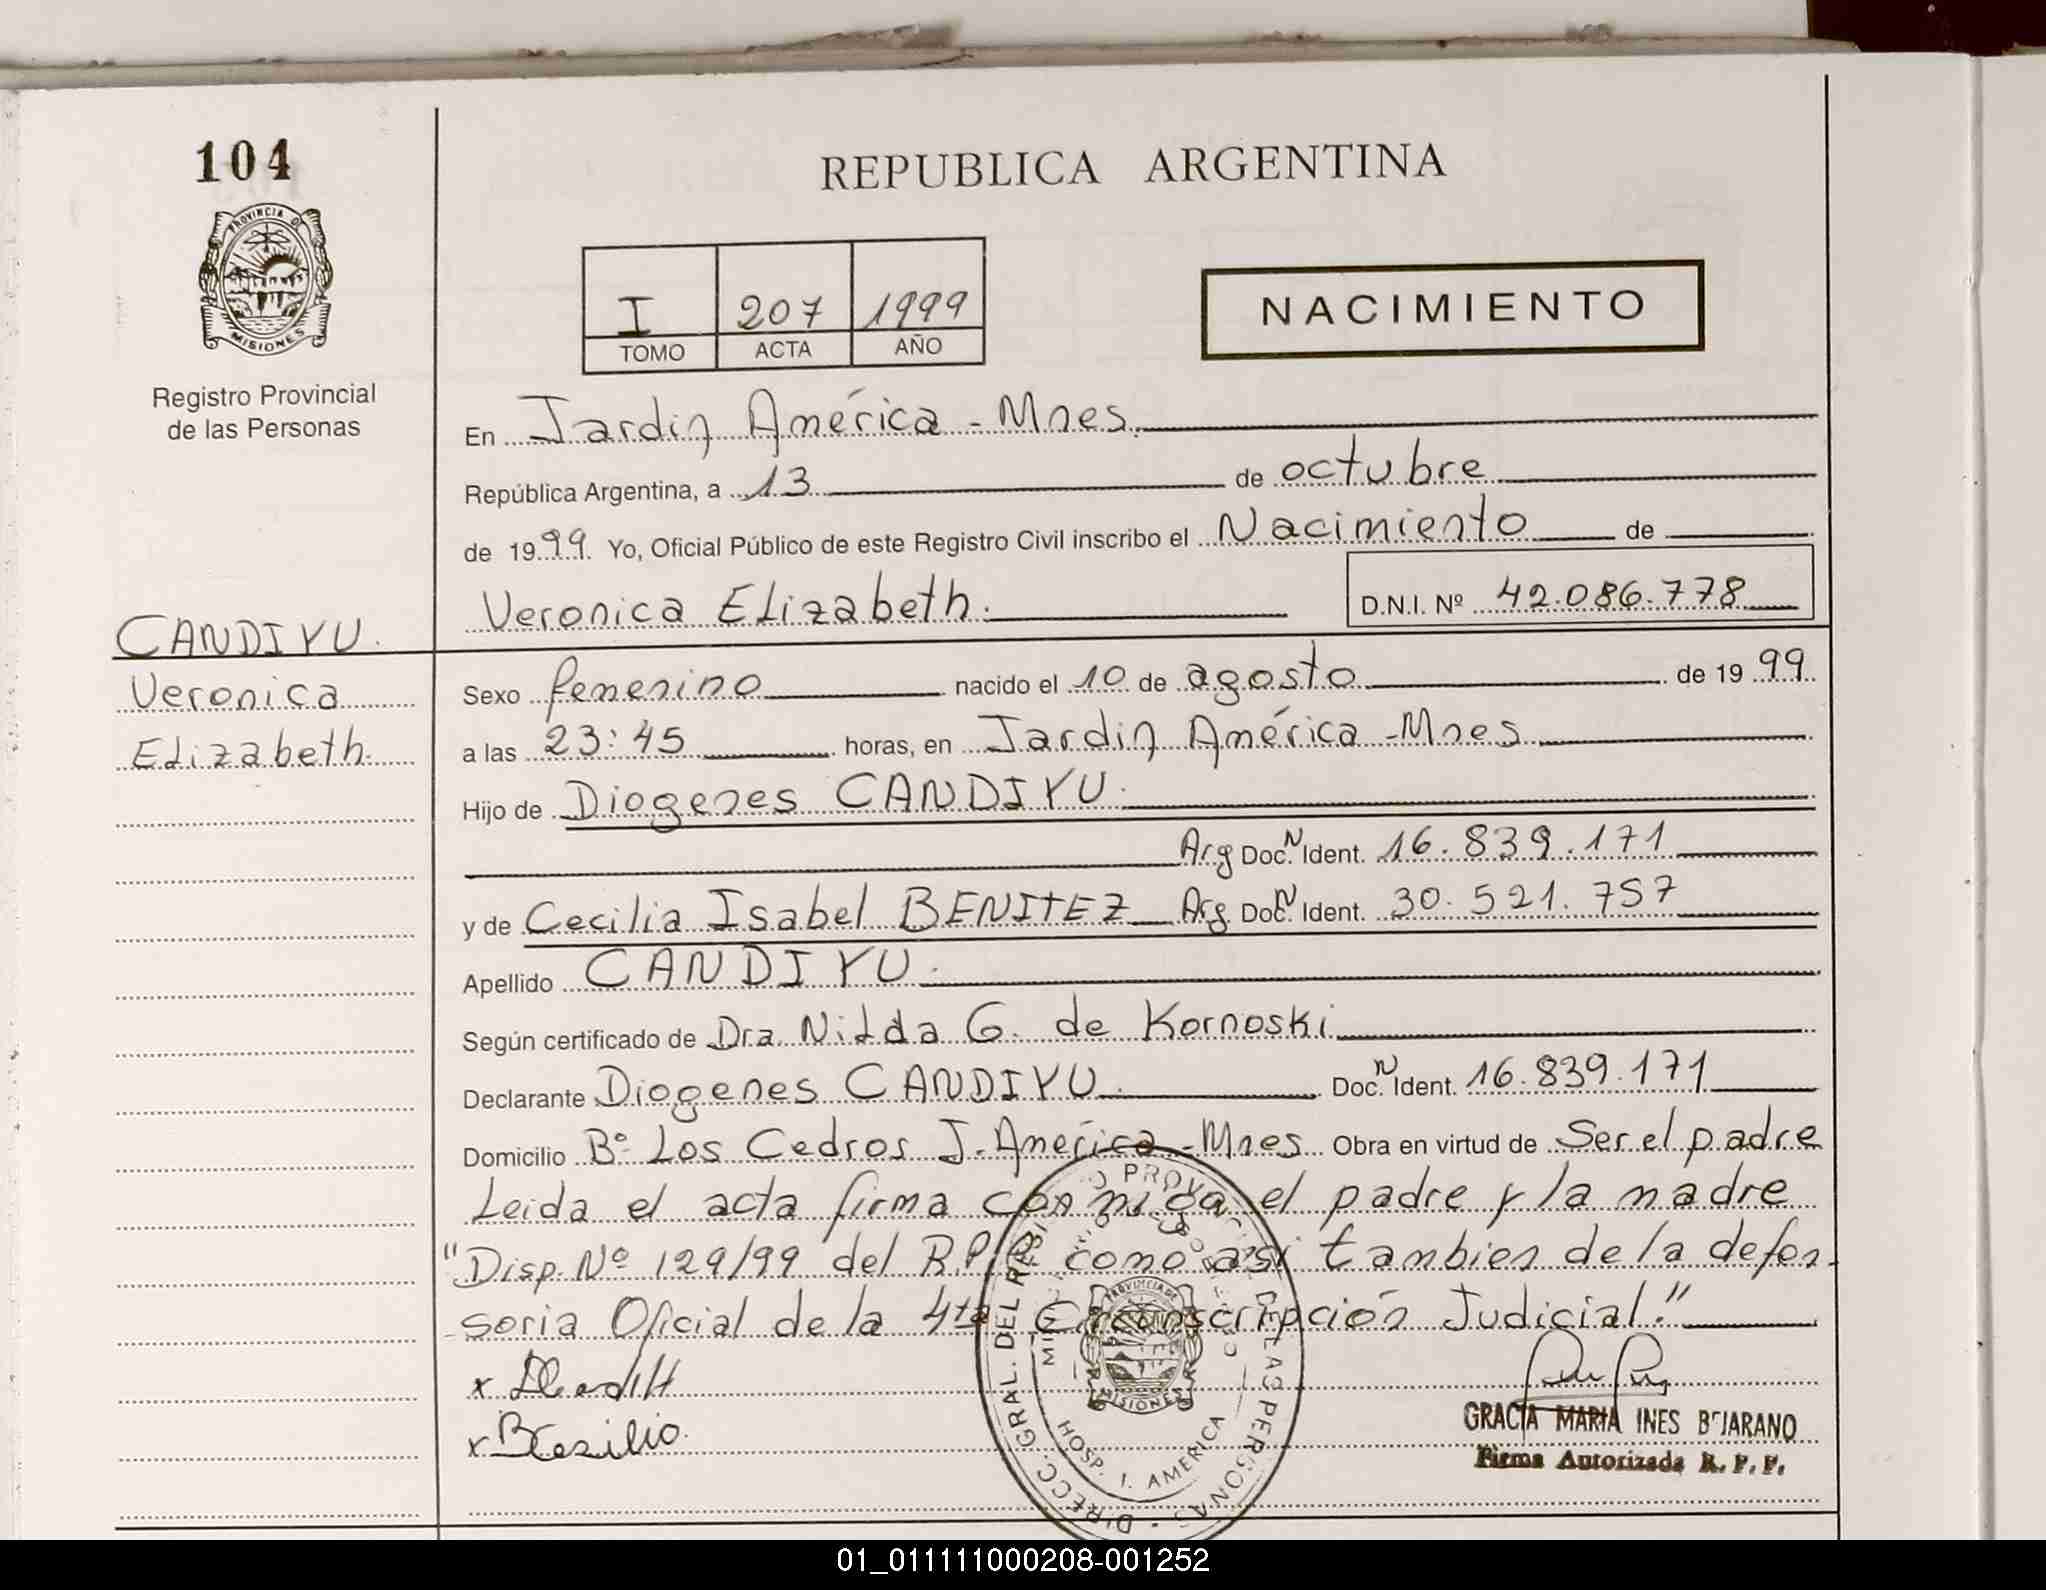 104
REPUBLICA ARGENTINA
PROVINCIA DE
MISIONES
Registro Provincial
de las Personas
I 207 1999
TOMO ACTA AÑO
NACIMIENTO
En Jardin América - Mnes.
República Argentina, a 13 de octubre
de 1999 Yo, Oficial Público de este Registro Civil inscribo el Nacimiento de
Veronica Elizabeth. D.N.I. Nº 42.086.778
CANDIYU.
Veronica
Elizabeth.
Sexo femenino nacido el 10 de agosto de 1999
a las 23:45 horas, en Jardin América - Mnes
Hijo de Diogenes CANDIYU.
Arg Doc. N Ident. 16.839.171
y de Cecilia Isabel BENITEZ Arg Doc. N Ident. 30.521.757
Apellido CANDIYU.
Según certificado de Dra Nilda G. de Kornoski
Declarante Diogenes CANDIYU. Doc. N Ident. 16.839.171
Domicilio Bº Los Cedros J. América - Mnes Obra en virtud de Ser el padre
Leida el acta firma conmigo el padre y la madre
"Disp. Nº 129/99 del R.P.P. como asi tambien de la defen-
soria Oficial de la 4ta Circunscripción Judicial."
x
x
DIRECC. GRAL. DEL REGISTRO PROVINCIAL DE LAS PERSONAS
HOSP. I. AMERICA
PROVINCIA DE
MISIONES
GRACIA MARIA INES BEJARANO
Firma Autorizada R. P. P.
01_011111000208-001252